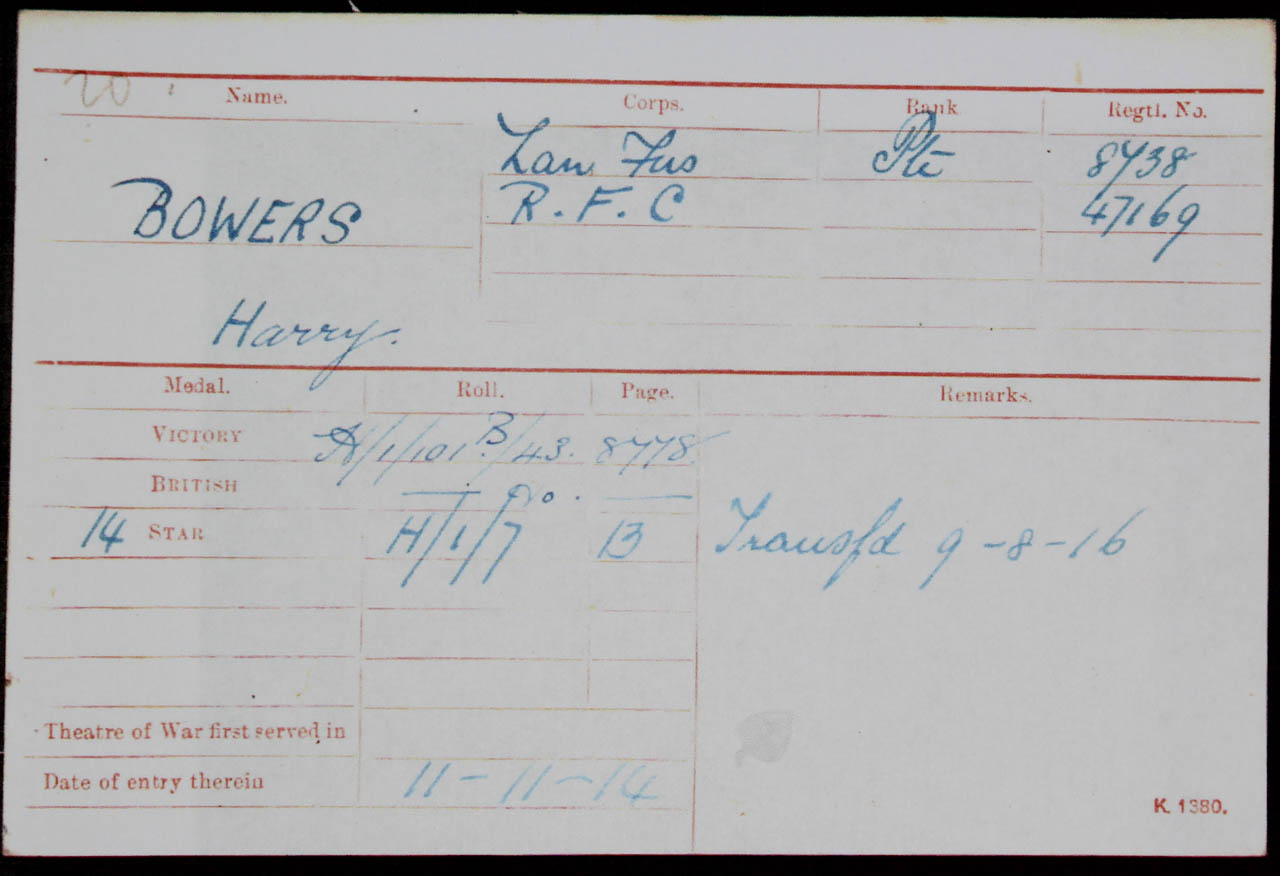 20
Name. Corps. Rank Regtl. No.
Lan Fus Pte 8738
BOWERS R. F. C 47169
Harry.
Medal. Roll. Page. Remarks.
VICTORY H/1/101 B/43. 8778
BRITISH — Do. —
14 STAR H/1/7 13 Transfd 9-8-16
Theatre of War first served in
Date of entry therein 11-11-14
K. 1380.